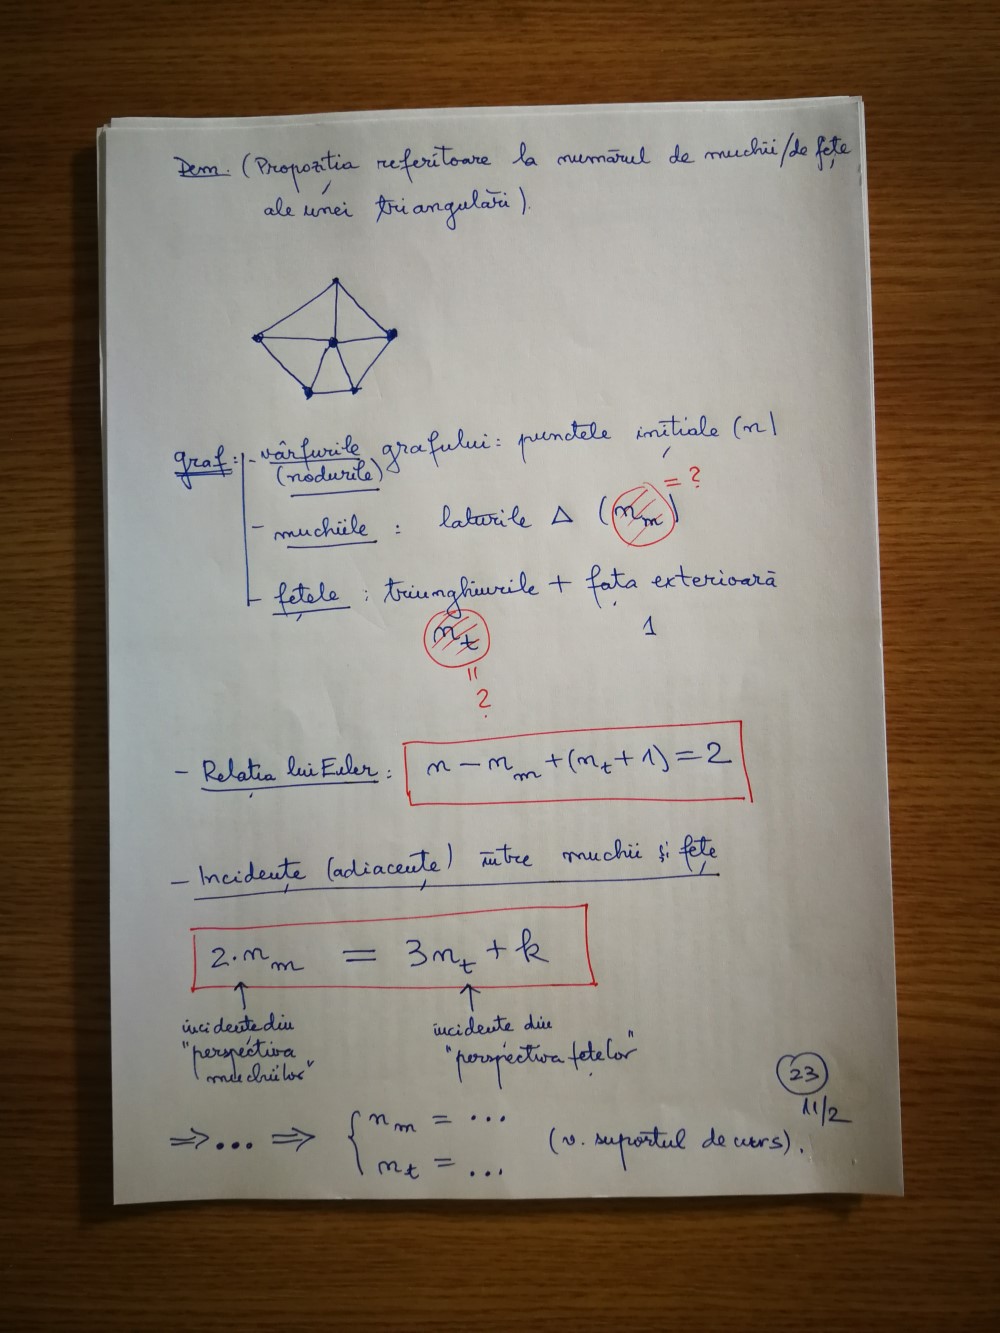 Dem. (Propoziția referitoare la numărul de muchii/de fețe
ale unei triangulări).
graf: - vârfurile grafului: punctele inițiale (n)
(nodurile)
= ?
- muchiile : laturile Δ (n_m)
- fețele : triunghiurile + fața exterioară
n_t 1
=
?
- Relația lui Euler: n - n_m + (n_t + 1) = 2
- Incidențe (adiacențe) între muchii și fețe
2·n_m = 3n_t + k
↑ ↑
incidențe din incidențe din
"perspectiva "perspectiva fețelor"
muchiilor"
23
11/2
⇒ ... ⇒ { n_m = ... (v. suportul de curs).
n_t = ...